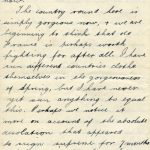 The country round here is
simply gorgeous now, & we are
beginning to think that old
France is perhaps worth
fighting for after all. I have
seen different countries clothe
themselves in the gorgeousness
of spring, but I have never
yet seen anything to equal
this. Perhaps I notice it
more on account of the absolute
desolation that appeared
to reign supreme for 7 months